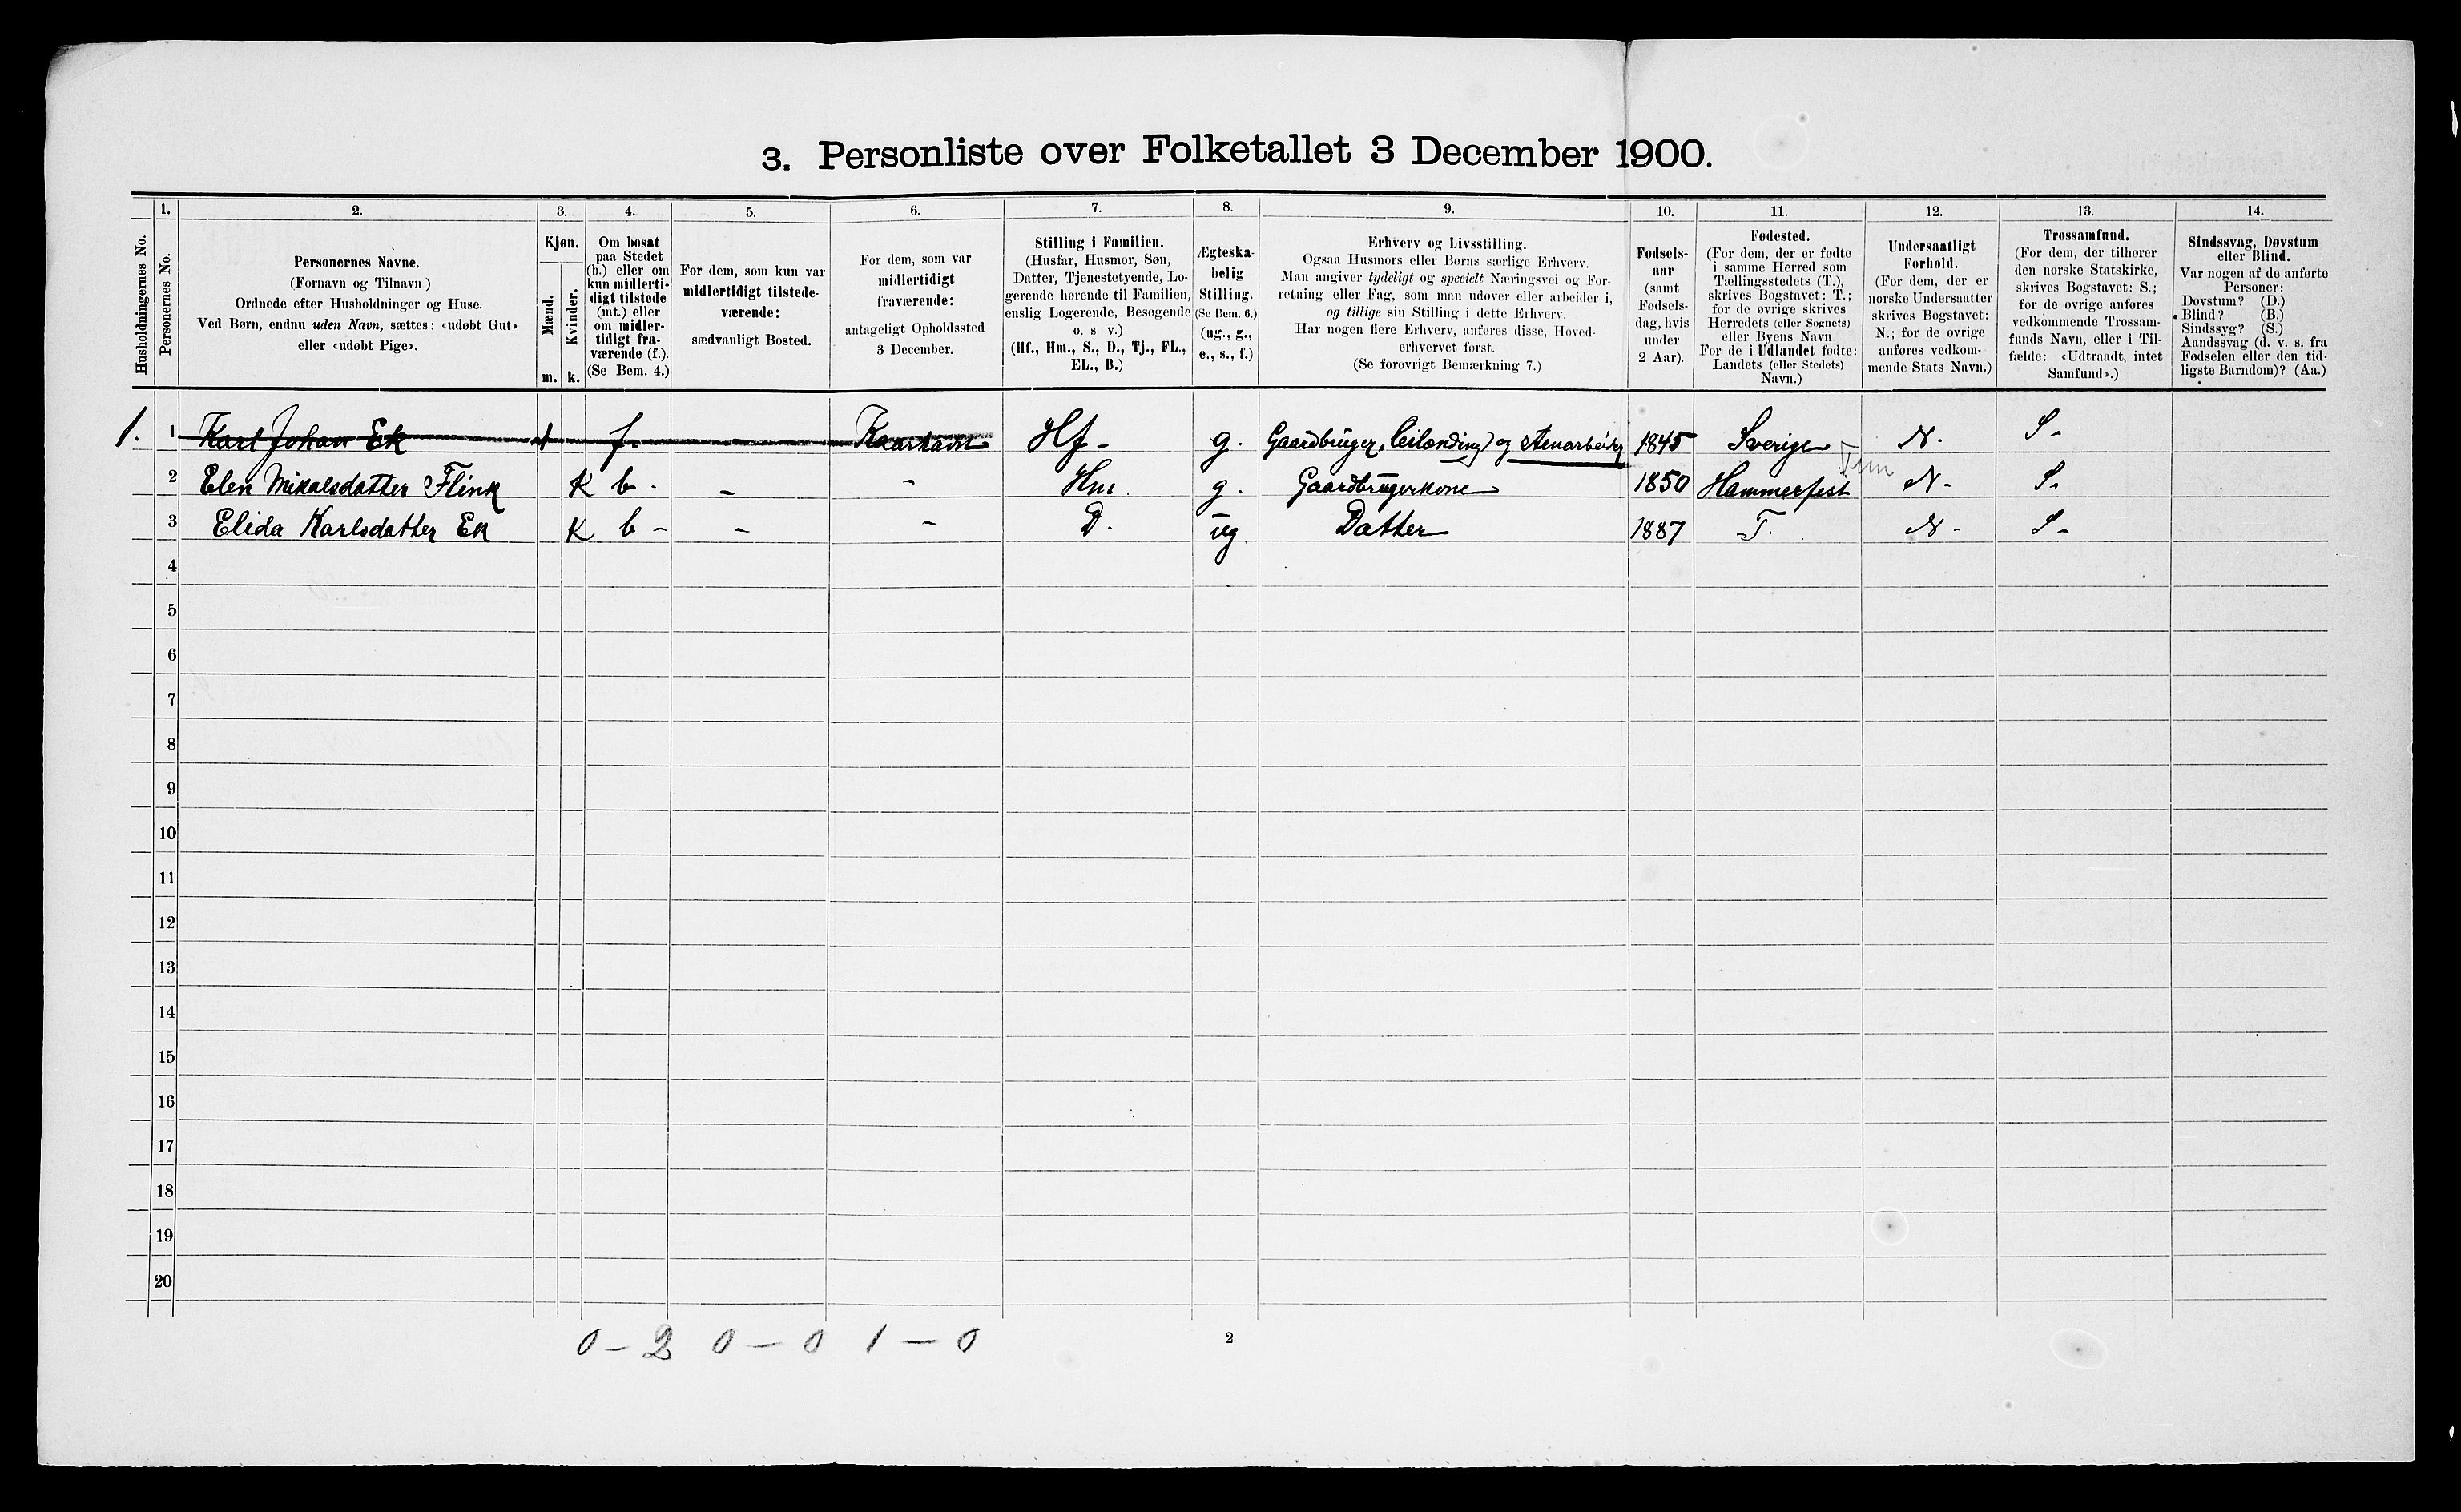 3. Personliste over Folketallet 3 December 1900.
1. 2. 3. 4. 5. 6. 7. 8. 9. 10. 11. 12. 13. 14.
Husholdningernes No.
Personernes No.
Personernes Navne.
(Fornavn og Tilnavn )
Ordnede efter Husholdninger og Huse.
Ved Børn, endnu uden Navn, sættes: «udøbt Gut»
eller «udøbt Pige».
Kjøn.
Mænd.
Kvinder.
m. k.
Om bosat
paa Stedet
(b.) eller om
kun midlerti-
digt tilstede
(mt.) eller
om midler-
tidigt fra-
værende (f.).
(Se Bem. 4.)
For dem, som kun var
midlertidigt tilstede-
værende:
sædvanligt Bosted.
For dem, som var
midlertidigt
fraværende:
antageligt Opholdssted
3 December.
Stilling i Familien.
(Husfar, Husmor, Søn,
Datter, Tjenestetyende, Lo-
gerende hørende til Familien,
enslig Logerende, Besøgende
o. s v.)
(Hf., Hm., S., D., Tj., FL.,
EL., B.)
Ægteska-
belig
Stilling.
(Se Bem. 6.)
(ug., g.,
e., s., f.)
Erhverv og Livsstilling.
Ogsaa Husmors eller Børns særlige Erhverv.
Man angiver tydeligt og specielt Næringsvei og For-
retning eller Fag, som man udøver eller arbeider i,
og tillige sin Stilling i dette Erhverv.
Har nogen flere Erhverv, anføres disse, Hoved-
erhvervet først.
(Se forøvrigt Bemærkning 7.)
Fødsels-
aar
(samt
Fødsels-
dag, hvis
under
2 Aar).
Fødested.
(For dem, der er fødte
i samme Herred som
Tællingsstedets (T.),
skrives Bogstavet: T.;
for de øvrige skrives
Herredets (eller Sognets)
eller Byens Navn
For de i Udlandet fødte:
Landets (eller Stedets)
Navn.)
Undersaatligt
Forhold.
(For dem, der er
norske Undersaatter
skrives Bogstavet:
N.; for de øvrige
anføres vedkom-
mende Stats Navn.)
Trossamfund.
(For dem, der tilhører
den norske Statskirke,
skrives Bogstavet: S.;
for de øvrige anføres
vedkommende Trossam-
funds Navn, eller i Til-
fælde: «Udtraadt, intet
Samfund».)
Sindssvag, Døvstum
eller Blind.
Var nogen af de anførte
Personer:
Døvstum? (D.)
Blind? (B.)
Sindssyg? (S.)
Aandssvag (d. v. s. fra
Fødselen eller den tid-
ligste Barndom)? (Aa.)
1. 1 Karl Johan Ek f. - Hf - g. Gaardbruger, (leilænding) og 1845 Sverige N. S -
2 Elen Mikalsdatter Flink K b. - - Hm. g. Gaardbrugerkone 1850 Hammerfest N - S -
3 Elida Karlsdatter Ek K b - - - D. ug. Datter 1887 - T. N - S -
4
5
6
7
8
9
10
11
12
13
14
15
16
17
18
19
20
0 - 2 0 - 0 1 - 0
2